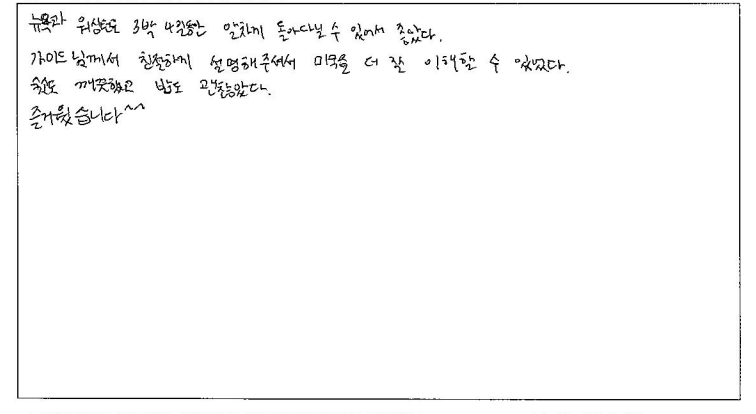 뉴욕과 워싱턴도 3박 4일동안 알차게 돌아다닐 수 있어서 좋았다.
가이드님께서 친절하게 설명해주셔서 미국을 더 잘 이해할 수 있었다.
숙소도 깨끗했고 밥도 괜찮았다.
즐거웠습니다^^